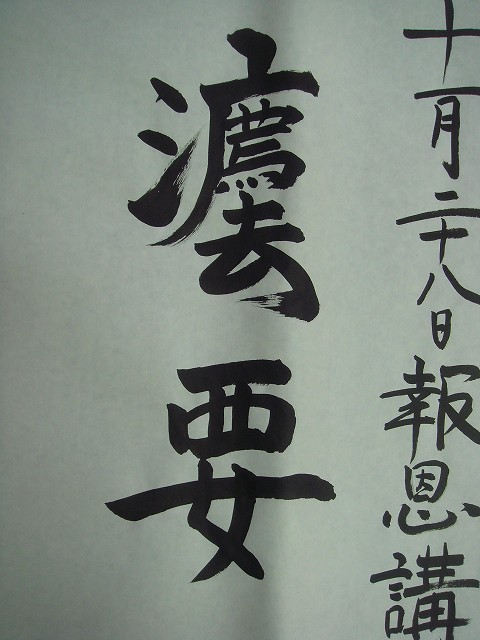 十一月二十八日報恩講
灋要